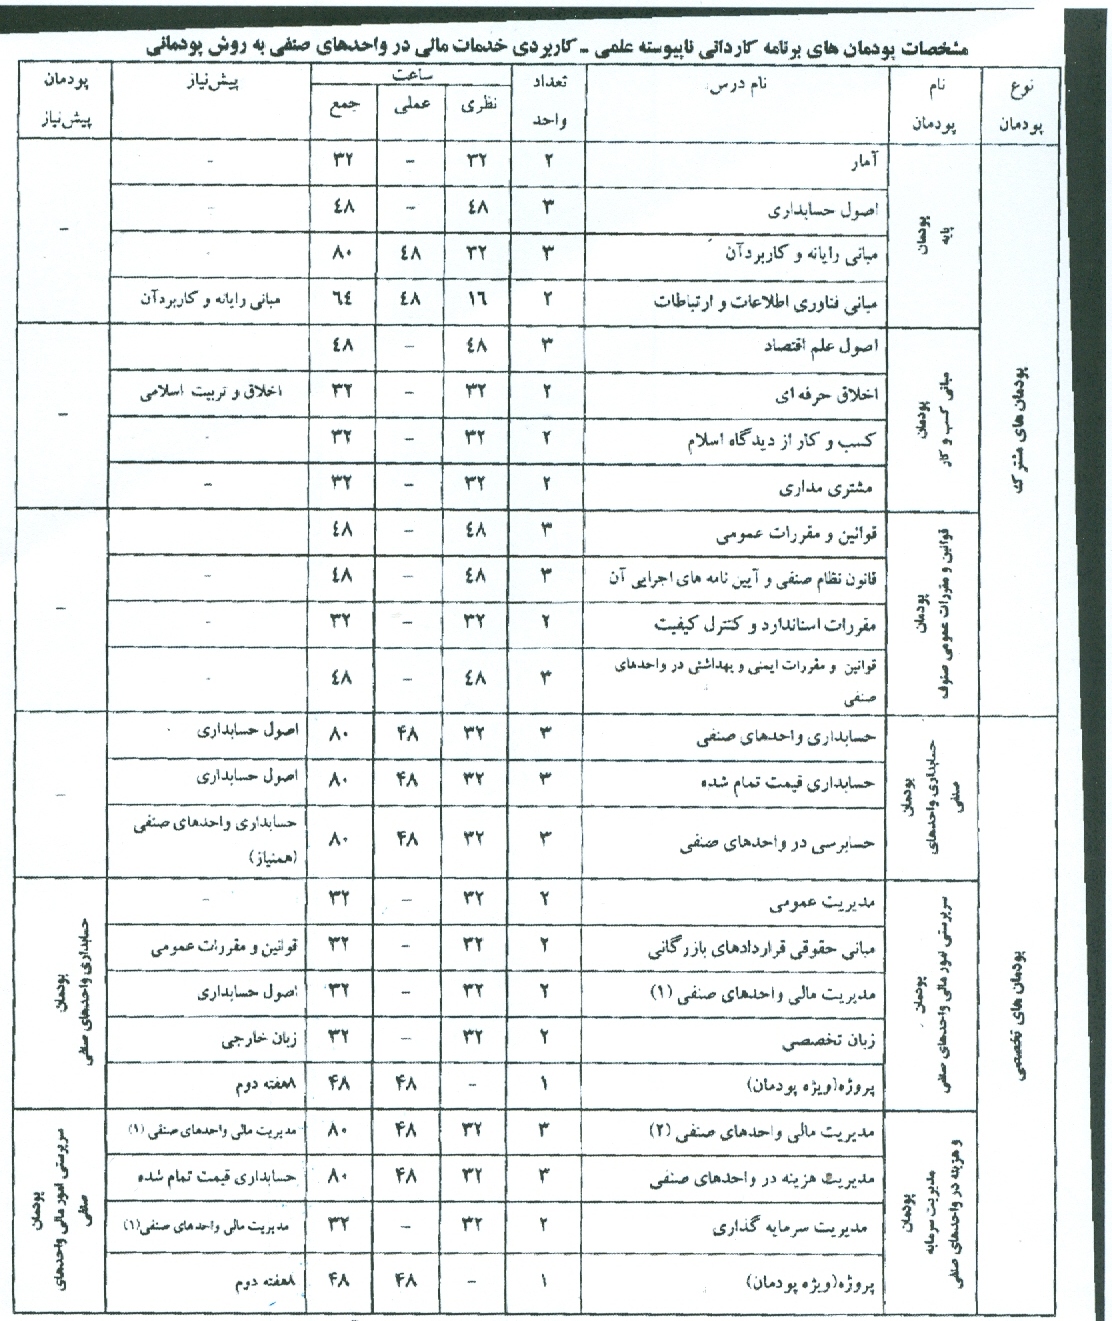 مشخصات پودمان های برنامه کاردانی ناپیوسته علمی ـ کاربردی خدمات مالی در واحدهای صنفی به روش پودمانی
نوع پودمان | نام پودمان | نام درس: | تعداد واحد | ساعت | پیش‌نیاز | پودمان پیش‌نیاز
نظری | عملی | جمع
پودمان های مشترک
پودمان پایه | –
آمار | ۲ | ۳۲ | – | ۳۲ | -
اصول حسابداری | ۳ | ٤۸ | – | ٤۸ | -
مبانی رایانه و کاربردآن | ۳ | ۳۲ | ٤۸ | ۸۰ | -
مبانی فناوری اطلاعات و ارتباطات | ۲ | ۱٦ | ٤۸ | ٦٤ | مبانی رایانه و کاربردآن
پودمان مبانی کسب و کار | –
اصول علم اقتصاد | ۳ | ٤۸ | – | ٤۸
اخلاق حرفه ای | ۲ | ۳۲ | – | ۳۲ | اخلاق و تربیت اسلامی
کسب و کار از دیدگاه اسلام | ۲ | ۳۲ | – | ۳۲ | -
مشتری مداری | ۲ | ۳۲ | – | ۳۲ | –
پودمان قوانین و مقررات عمومی صنوف | –
قوانین و مقررات عمومی | ۳ | ٤۸ | – | ٤۸
قانون نظام صنفی و آیین نامه های اجرایی آن | ۳ | ٤۸ | – | ٤۸ | -
مقررات استاندارد و کنترل کیفیت | ۲ | ۳۲ | – | ۳۲ | -
قوانین و مقررات ایمنی و بهداشتی در واحدهای صنفی | ۳ | ٤۸ | – | ٤۸ | -
پودمان های تخصصی
پودمان حسابداری واحدهای صنفی | –
حسابداری واحدهای صنفی | ۳ | ۳۲ | ۴۸ | ۸۰ | اصول حسابداری
حسابداری قیمت تمام شده | ۳ | ۳۲ | ۴۸ | ۸۰ | اصول حسابداری
حسابرسی در واحدهای صنفی | ۳ | ۳۲ | ۴۸ | ۸۰ | حسابداری واحدهای صنفی (همنیاز)
پودمان سرپرستی امور مالی واحدهای صنفی | پودمان حسابداری واحدهای صنفی
مدیریت عمومی | ۲ | ۳۲ | – | ۳۲ | -
مبانی حقوقی قراردادهای بازرگانی | ۲ | ۳۲ | – | ۳۲ | قوانین و مقررات عمومی
مدیریت مالی واحدهای صنفی (۱) | ۲ | ۳۲ | – | ۳۲ | اصول حسابداری
زبان تخصصی | ۲ | ۳۲ | – | ۳۲ | زبان خارجی
پروژه(ویژه پودمان) | ۱ | – | ۴۸ | ۴۸ | ۸هفته دوم
پودمان مدیریت سرمایه و هزینه در واحدهای صنفی | پودمان سرپرستی امور مالی واحدهای صنفی
مدیریت مالی واحدهای صنفی (۲) | ۳ | ۳۲ | ۴۸ | ۸۰ | مدیریت مالی واحدهای صنفی (۱)
مدیریت هزینه در واحدهای صنفی | ۳ | ۳۲ | ۴۸ | ۸۰ | حسابداری قیمت تمام شده
مدیریت سرمایه گذاری | ۲ | ۳۲ | – | ۳۲ | مدیریت مالی واحدهای صنفی(۱)
پروژه(ویژه پودمان) | ۱ | – | ۴۸ | ۴۸ | ۸هفته دوم